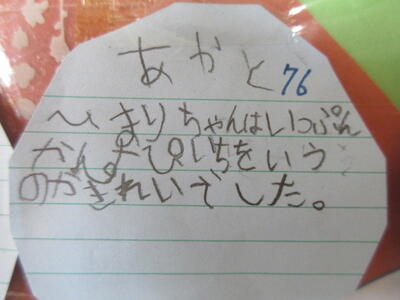 あかと 76
ひまりちゃんはいっぷん
かんすぴいちをいう
のがきれいでした。